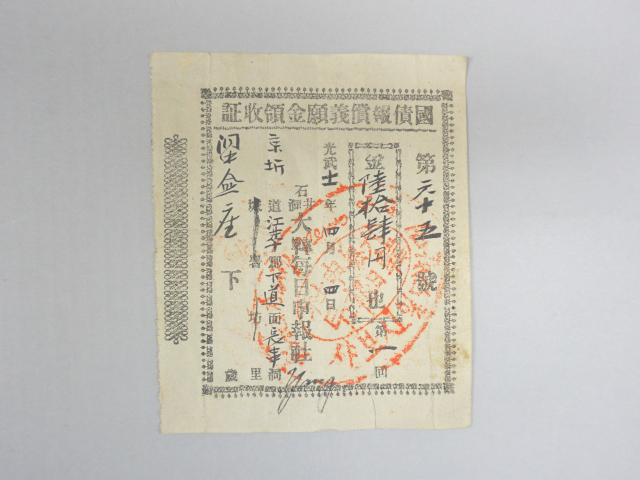 國債報償義願金領收証
第 六十五 號
金陸拾肆円也
第一回
光武十一年四月四日
石井洞 大韓每日申報社
京圻道 江華郡 下道面 長事洞
里
座下
歲